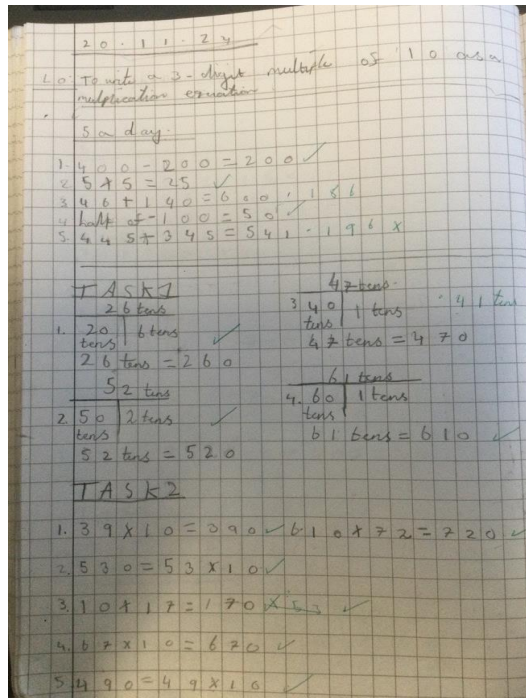 20.11.24
LO: To write a 3-digit multiple of 10 as a
multplication equation
5 a day.
1. 400-200=200 ✓
2 5×5=25 ✓
3 46+140=600.156
4 half of 100=50 ✓
5. 445+345=541.196 x
TASK1
26 tens
1. 20 | 6 tens ✓
tens
26 tens=260
52 tens
2. 50 | 2 tens ✓
tens
52 tens=520
47 tens.
3 40 | 1 tens .41 tens
tens
47 tens=470
61 tens
4. 60 | 1 tens
tens
61 tens=610 ✓
TASK2
1. 39×10=390 ✓ 6.10×72=720 ✓
2. 530=53×10 ✓
3. 10×17=170 ✓
4. 67×10=670 ✓
5. 490=49×10 ✓